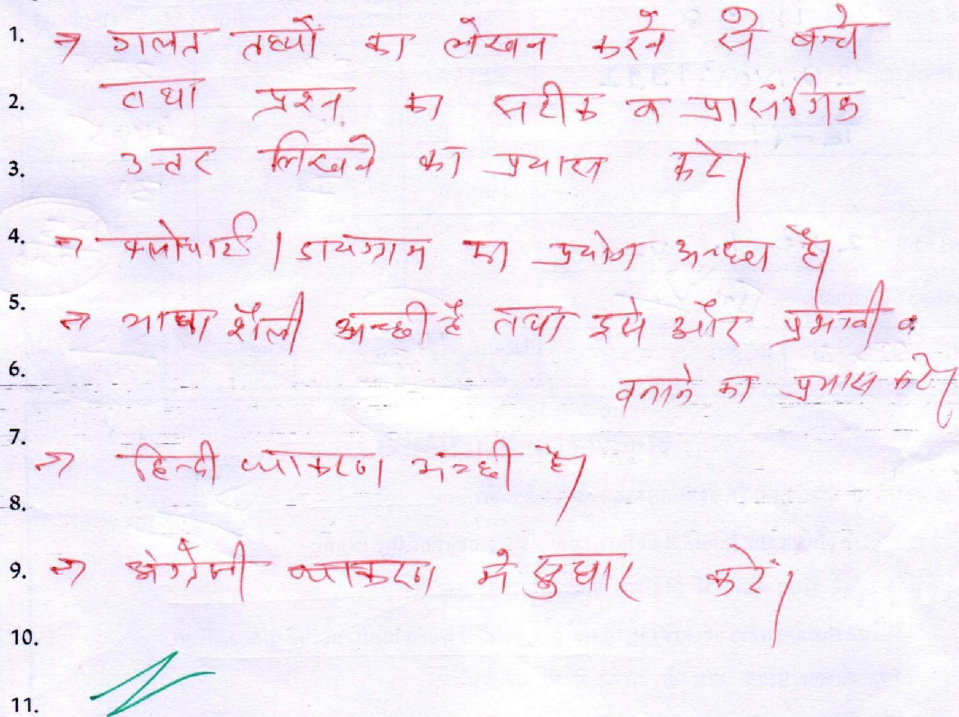 1. ⇒ गलत तथ्यों का लेखन करने से बचे
2. तथा प्रश्न का सटीक व प्रासंगिक
3. उत्तर लिखने का प्रयास करे।
4. ⇒ फ्लोचार्ट / डायग्राम का प्रयोग अच्छा है।
5. ⇒ भाषा शैली अच्छी है तथा इसे और प्रभावी व
6. बनाने का प्रयास करे।
7. ⇒ हिन्दी व्याकरण अच्छी है।
8.
9. ⇒ अंग्रेजी व्याकरण में सुधार करें।
10.
11.